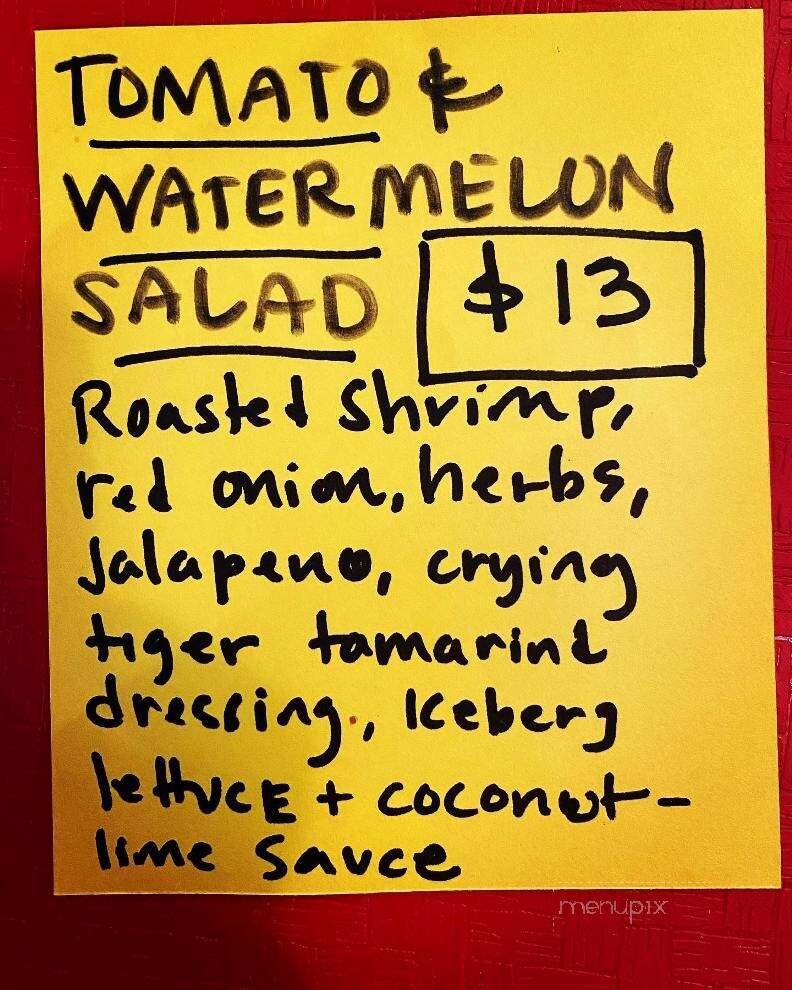 TOMATO &
WATERMELON
SALAD $13
Roasted Shrimp,
red onion, herbs,
Jalapeno, crying
tiger tamarind
dressing, Iceberg
lettuce + coconut-
lime sauce
menupix